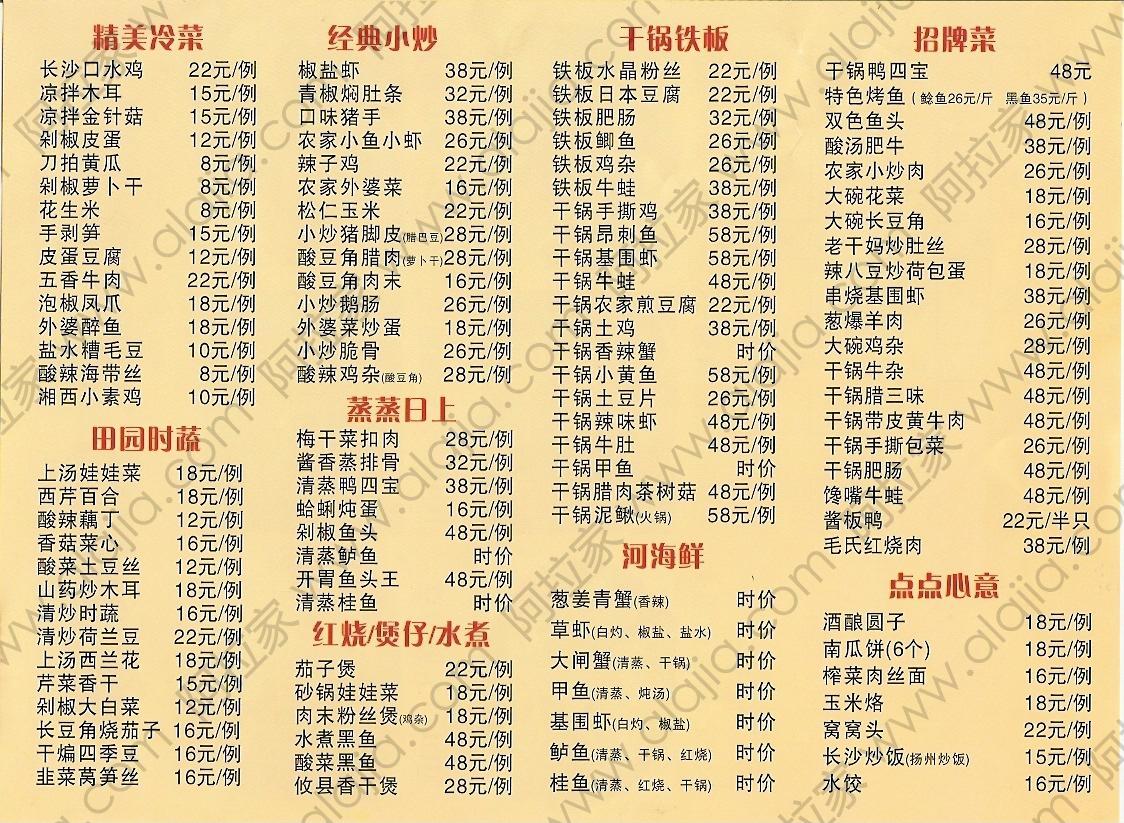 精美冷菜
长沙口水鸡 22元/例
凉拌木耳 15元/例
凉拌金针菇 15元/例
剁椒皮蛋 12元/例
刀拍黄瓜 8元/例
剁椒萝卜干 8元/例
花生米 8元/例
手剥笋 15元/例
皮蛋豆腐 12元/例
五香牛肉 22元/例
泡椒凤爪 18元/例
外婆醉鱼 18元/例
盐水糟毛豆 10元/例
酸辣海带丝 8元/例
湘西小素鸡 10元/例
田园时蔬
上汤娃娃菜 18元/例
西芹百合 18元/例
酸辣藕丁 12元/例
香菇菜心 16元/例
酸菜土豆丝 12元/例
山药炒木耳 18元/例
清炒时蔬 16元/例
清炒荷兰豆 22元/例
上汤西兰花 18元/例
芹菜香干 15元/例
剁椒大白菜 12元/例
长豆角烧茄子 16元/例
干煸四季豆 16元/例
韭菜莴笋丝 16元/例
经典小炒
椒盐虾 38元/例
青椒焖肚条 32元/例
口味猪手 38元/例
农家小鱼小虾 26元/例
辣子鸡 22元/例
农家外婆菜 16元/例
松仁玉米 22元/例
小炒猪脚皮(腊巴豆) 28元/例
酸豆角腊肉(萝卜干) 28元/例
酸豆角肉末 16元/例
小炒鹅肠 26元/例
外婆菜炒蛋 18元/例
小炒脆骨 26元/例
酸辣鸡杂(酸豆角) 28元/例
蒸蒸日上
梅干菜扣肉 28元/例
酱香蒸排骨 32元/例
清蒸鸭四宝 38元/例
蛤蜊炖蛋 16元/例
剁椒鱼头 48元/例
清蒸鲈鱼 时价
开胃鱼头王 48元/例
清蒸桂鱼 时价
红烧/煲仔/水煮
茄子煲 22元/例
砂锅娃娃菜 18元/例
肉末粉丝煲(鸡杂) 18元/例
水煮黑鱼 48元/例
酸菜黑鱼 48元/例
攸县香干煲 28元/例
干锅铁板
铁板水晶粉丝 22元/例
铁板日本豆腐 22元/例
铁板肥肠 32元/例
铁板鲫鱼 26元/例
铁板鸡杂 26元/例
铁板牛蛙 38元/例
干锅手撕鸡 38元/例
干锅昂刺鱼 58元/例
干锅基围虾 58元/例
干锅牛蛙 48元/例
干锅农家煎豆腐 22元/例
干锅土鸡 38元/例
干锅香辣蟹 时价
干锅小黄鱼 58元/例
干锅土豆片 26元/例
干锅辣味虾 48元/例
干锅牛肚 48元/例
干锅甲鱼 时价
干锅腊肉茶树菇 48元/例
干锅泥鳅(火锅) 58元/例
河海鲜
葱姜青蟹(香辣) 时价
草虾(白灼、椒盐、盐水) 时价
大闸蟹(清蒸、干锅) 时价
甲鱼(清蒸、炖汤) 时价
基围虾(白灼、椒盐) 时价
鲈鱼(清蒸、干锅、红烧) 时价
桂鱼(清蒸、红烧、干锅) 时价
招牌菜
干锅鸭四宝 48元
特色烤鱼(鲶鱼26元/斤 黑鱼35元/斤)
双色鱼头 48元/例
酸汤肥牛 38元/例
农家小炒肉 26元/例
大碗花菜 18元/例
大碗长豆角 16元/例
老干妈炒肚丝 28元/例
辣八豆炒荷包蛋 18元/例
串烧基围虾 38元/例
葱爆羊肉 26元/例
大碗鸡杂 28元/例
干锅牛杂 48元/例
干锅腊三味 48元/例
干锅带皮黄牛肉 48元/例
干锅手撕包菜 26元/例
干锅肥肠 48元/例
馋嘴牛蛙 48元/例
酱板鸭 22元/半只
毛氏红烧肉 38元/例
点点心意
酒酿圆子 18元/例
南瓜饼(6个) 18元/例
榨菜肉丝面 16元/例
玉米烙 18元/例
窝窝头 22元/例
长沙炒饭(扬州炒饭) 15元/例
水饺 16元/例
阿拉家 www.alajia.com